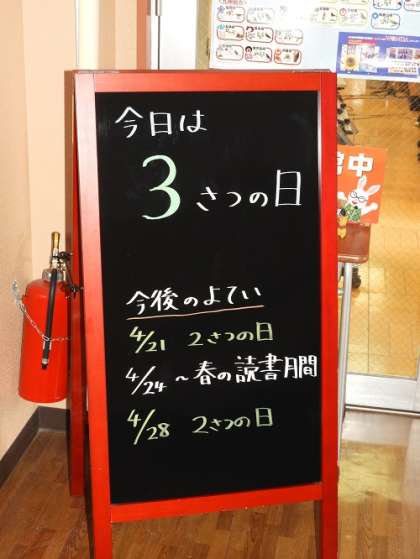 今日は
3さつの日
今後のよてい
4/21 2さつの日
4/24～春の読書月間
4/28 2さつの日
中